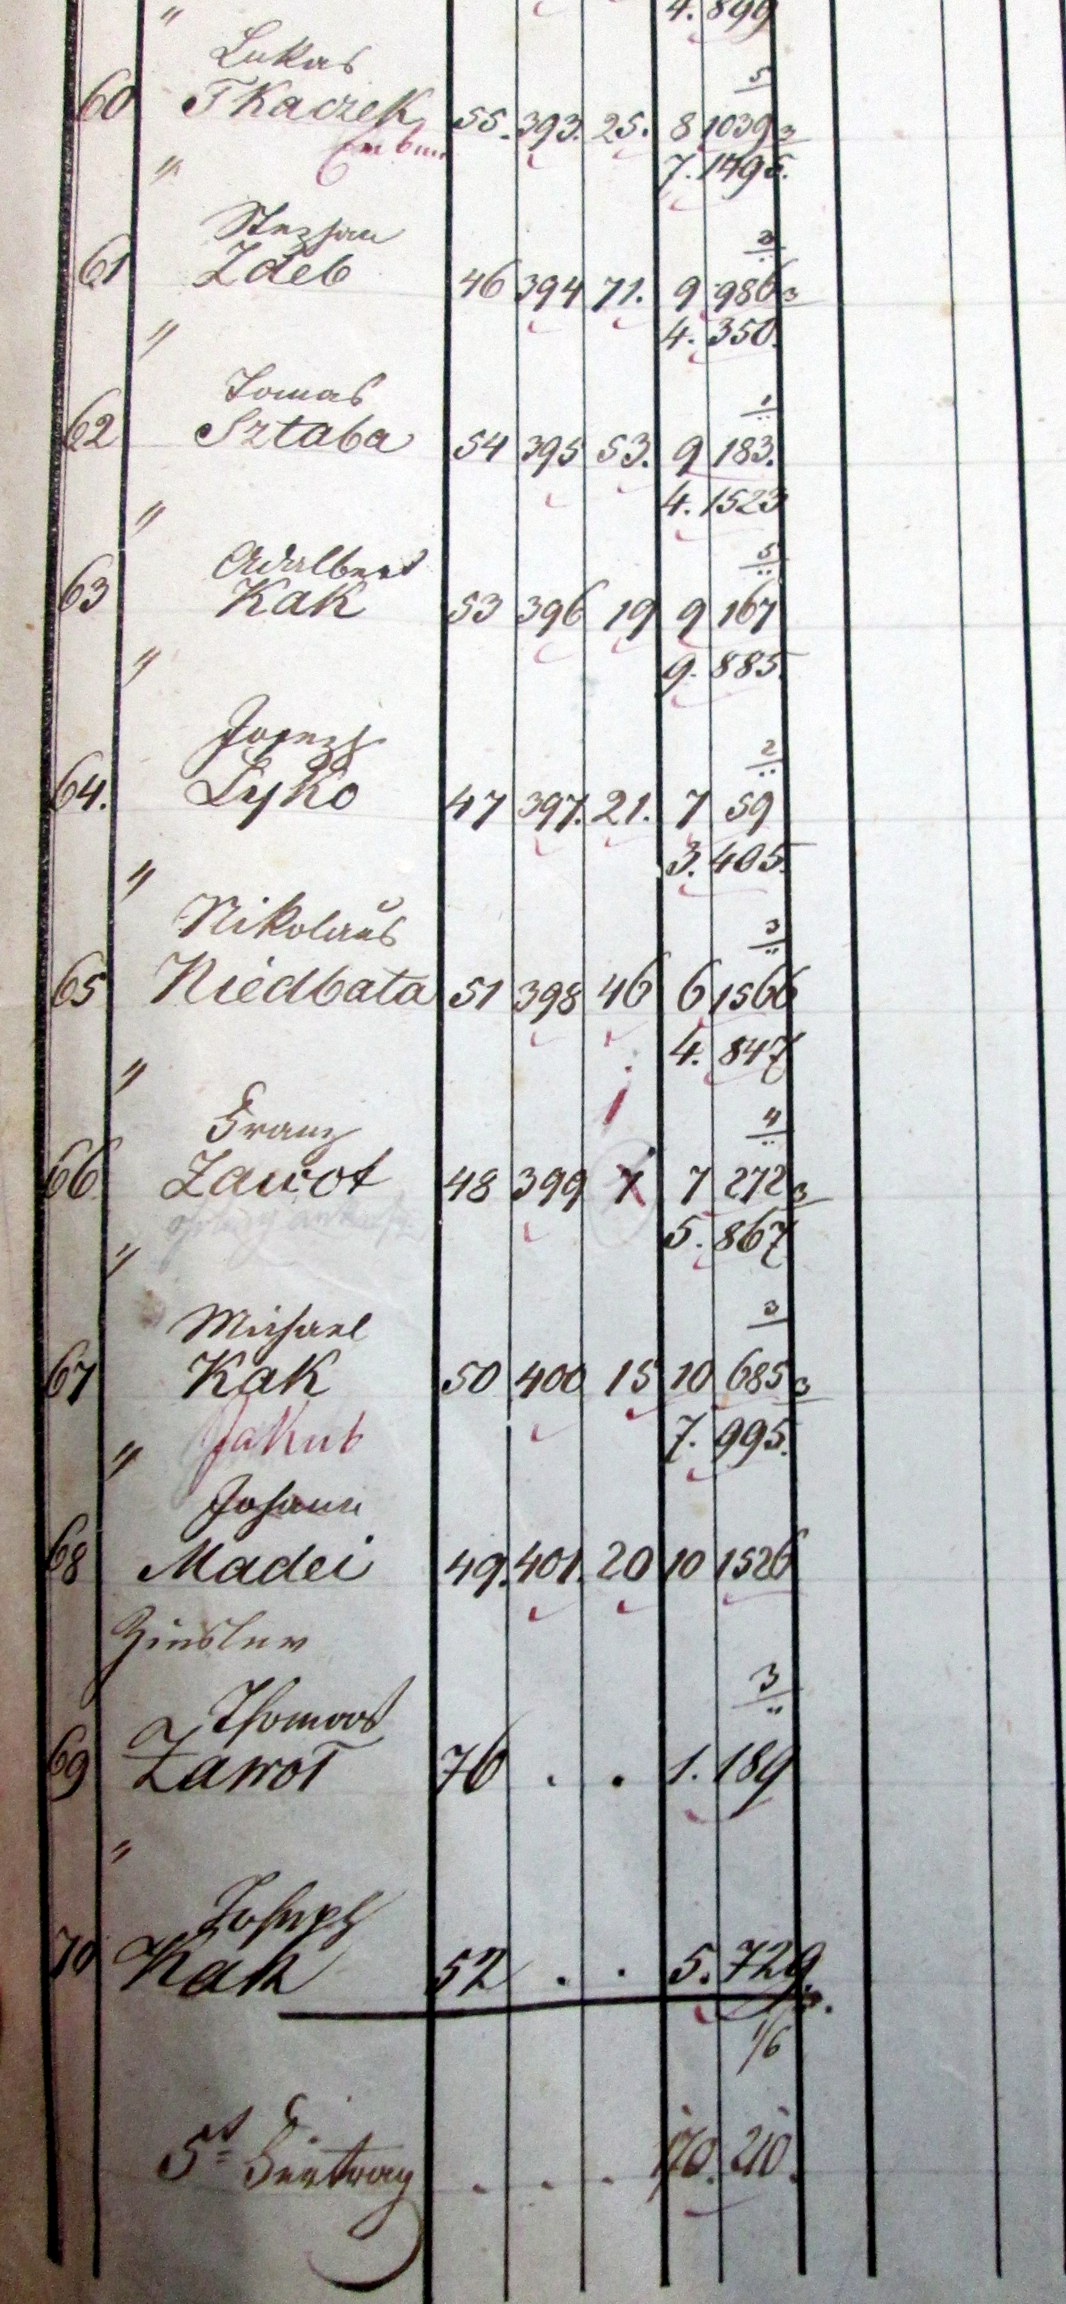 " 4. 899
Lukas 5
60 Tkaczek 55. 393. 25. 8 1039 3
" 7. 1495.
Stephan 3
61 Zdeb 46 394 71. 9 986 3
" 4. 350.
Tomas 1
62 Sztaba 54 395 53. 9 183.
" 4. 1523
Adalbert 5
63 Kak 53 396 19 9 167
" 9. 885
Joseph 2
64. Lyko 47 397. 21. 7 59
" 3. 405.
Nikolaus 3
65 Niedbała 51 398 46 6 1566
" 4. 847
1
Franz 4
66 Zawot 48 399 7 7 272 3
" 5. 867
Michael 3
67 Kak 50 400 15 10 685 3
" Jakub 7. 995.
Johann
68 Madei 49. 401. 20 10 1526
Zinsler
Thomas 3
69 Zawoł 76 . . 1. 189
"
Joseph
70 Kak 52 . . 5. 729.
1/6
5t Fürtrag . . . 170. 210.